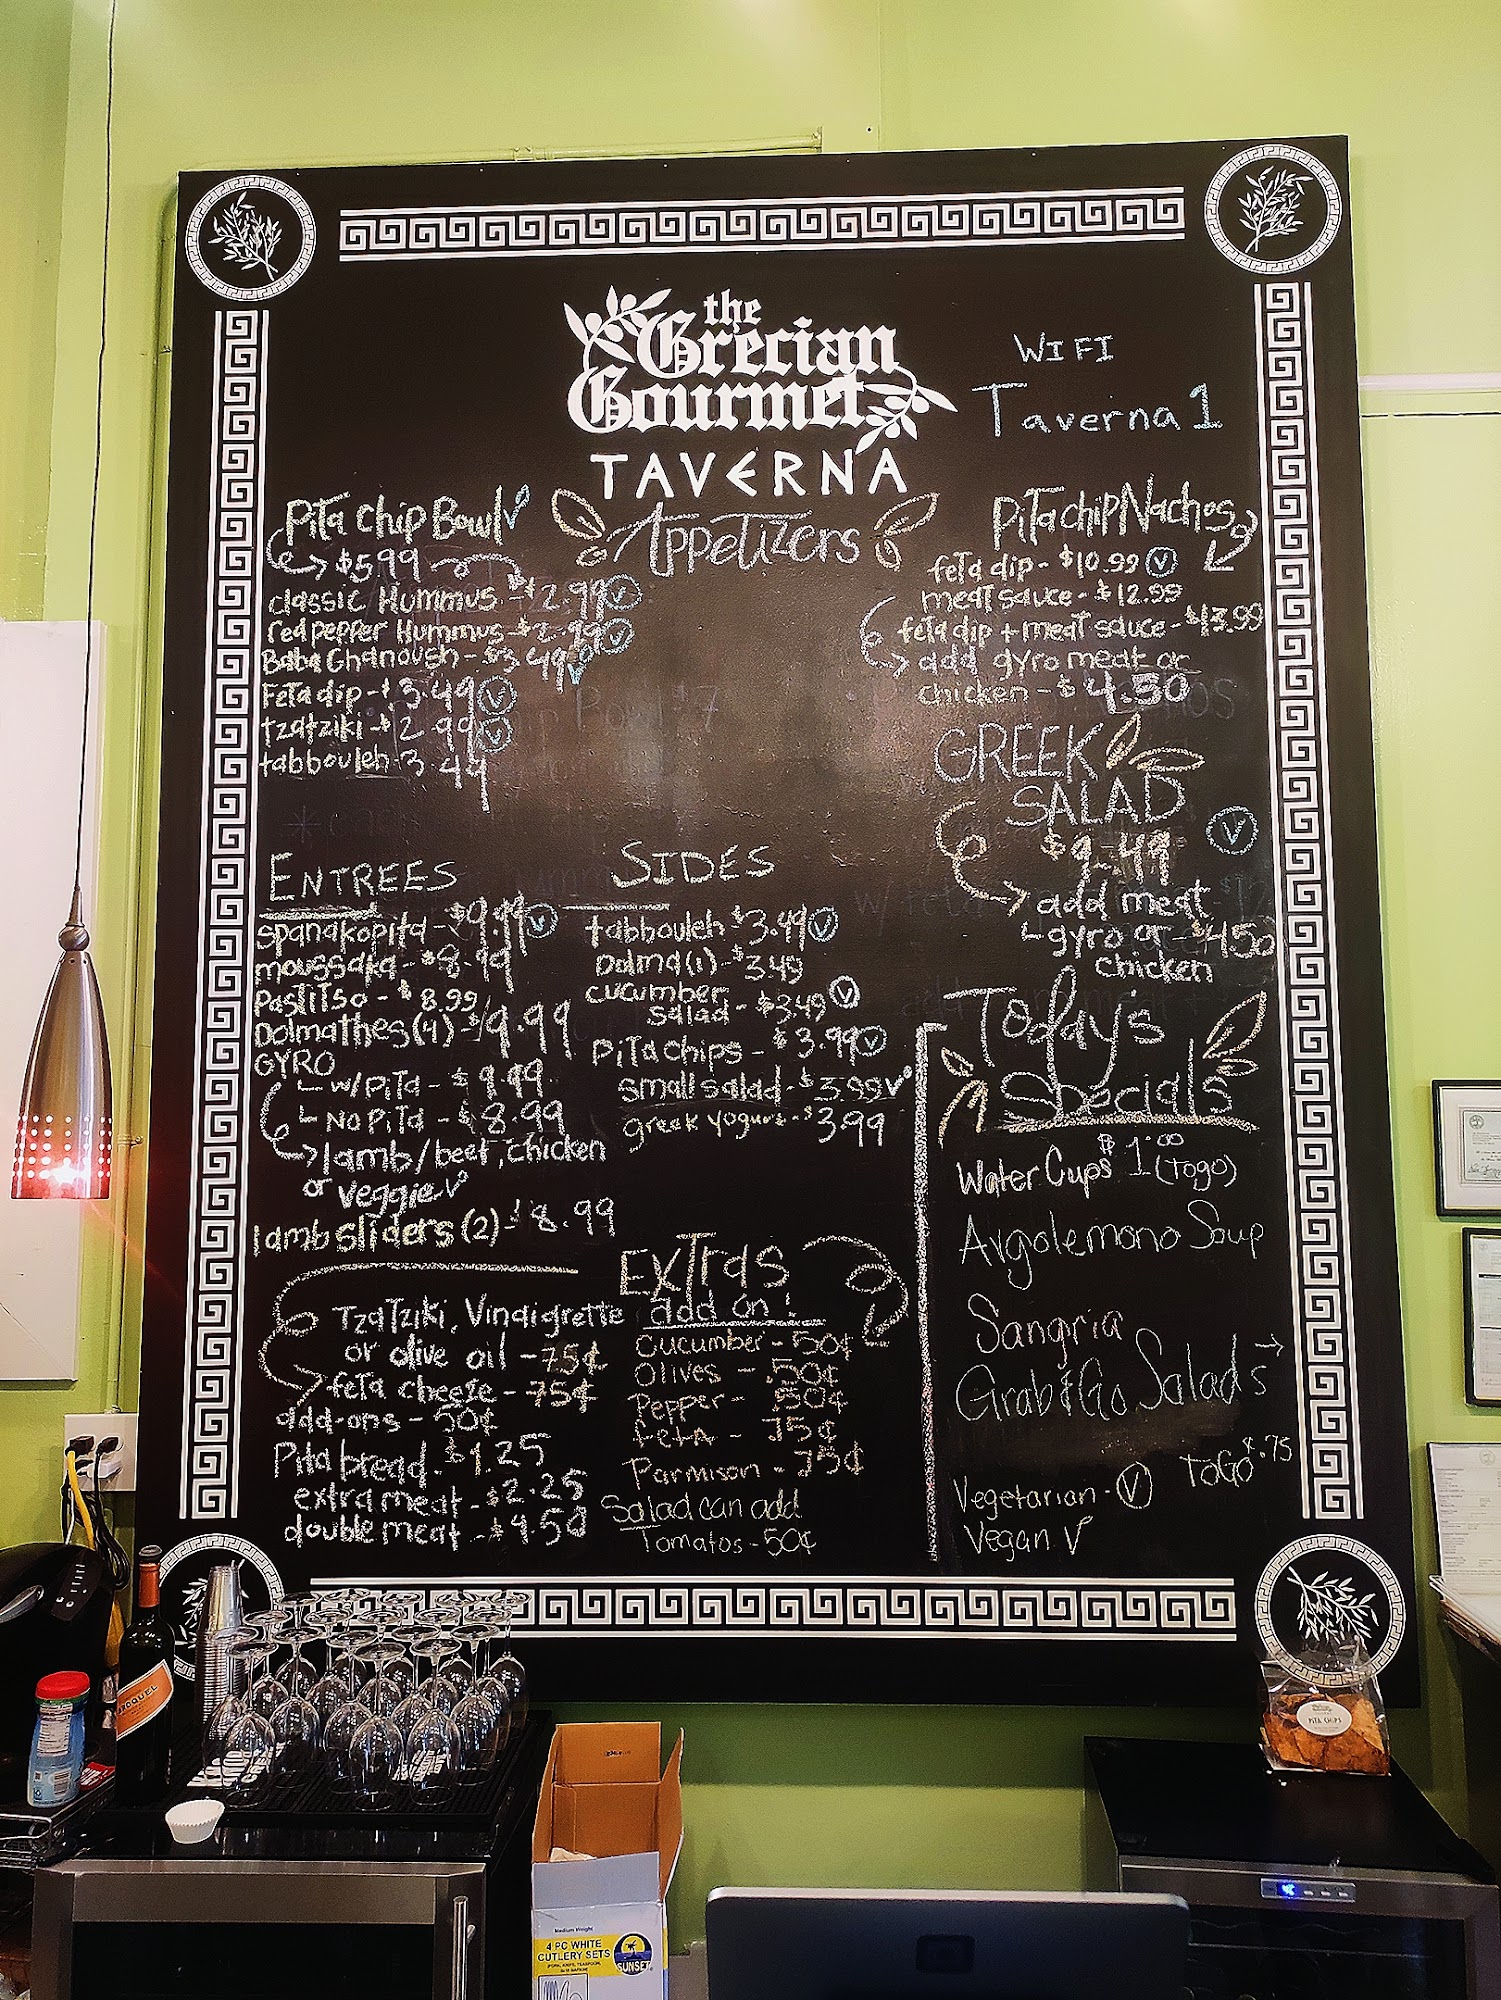 the
Grecian
Gourmet
TAVERNA
WIFI
Taverna 1
Appetizers
Pita chip Bowl V
$5.99
classic Hummus - $2.99 V
red pepper Hummus - $2.99 V
Baba Ghanoush - $3.49 V
Feta dip - $3.49 V
tzatziki - $2.99 V
tabbouleh - 3.44
Pita chip Nachos
feta dip - $10.99 V
meat sauce - $12.99
feta dip + meat sauce - $13.99
add gyro meat or
chicken - $4.50
GREEK
SALAD
$9.49 V
add meat
gyro or - $4.50
chicken
ENTREES
spanakopita - $9.99 V
moussaka - $8.99
Pastitso - $8.99
Dolmathes (4) - $9.99
GYRO
w/pita - $9.99
No Pita - $8.99
lamb/beef, chicken
or veggie V
lamb sliders (2) - $8.99
SIDES
tabbouleh $3.49 V
Dolma (1) - $3.49
cucumber
salad - $3.49 V
Pita chips - $3.99 V
small salad - $3.99 V
greek yogurt - $3.99
Today's
Specials
Water Cups $1.00 (ToGo)
Avgolemono Soup
Sangria
Grab & Go Salads →
ToGo $.75
Vegetarian - V
Vegan V
Extras
add on!
Tzatziki, Vinaigrette
or olive oil - 75¢
feta cheese - 75¢
add-ons - 50¢
Pita bread - $1.25
extra meat - $2.25
double meat - $4.50
Cucumber - 50¢
Olives - .50¢
Pepper - .50¢
Feta - .75¢
Parmison - .75¢
Salad can add
Tomatos - 50¢
PITA CHIPS
Medium Weight
4 PC WHITE
CUTLERY SETS
SUNSET